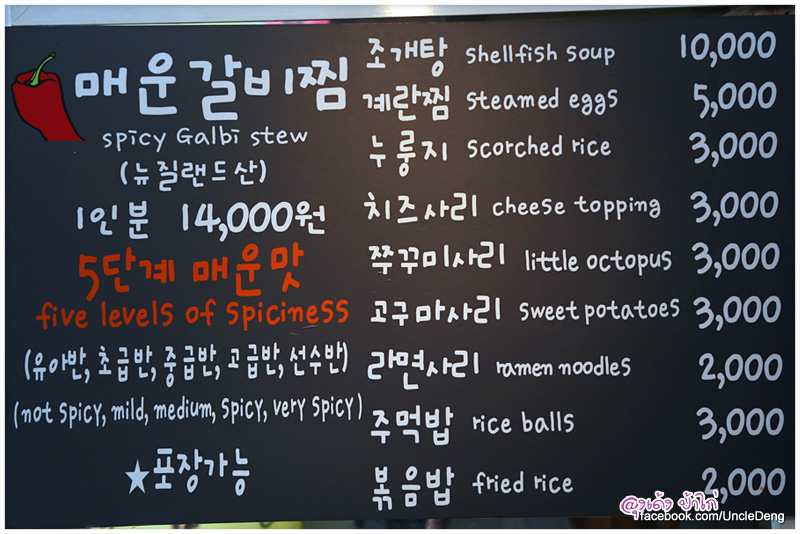 매운갈비찜
spicy Galbi stew
(뉴질랜드산)
1인분 14,000원
5단계 매운맛
five levels of spiciness
(유아반, 초급반, 중급반, 고급반, 선수반)
(not spicy, mild, medium, spicy, very spicy)
★포장가능
조개탕 shellfish soup 10,000
계란찜 steamed eggs 5,000
누룽지 scorched rice 3,000
치즈사리 cheese topping 3,000
쭈꾸미사리 little octopus 3,000
고구마사리 sweet potatoes 3,000
라면사리 ramen noodles 2,000
주먹밥 rice balls 3,000
볶음밥 fried rice 2,000
ลุงเด้ง ป้าไก่
facebook.com/UncleDeng